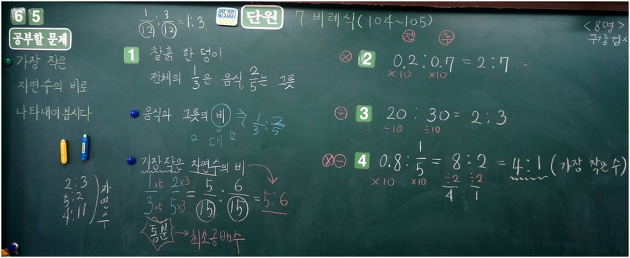 6 5
1/3 : 3/3 = 1 : 3
12 12
단원 7 비례식 (104~105)
<8명>
공부할 문제
가장 작은
자연수의 비로
나타내어 봅시다
2 : 3
5 : 2
4 : 11
자연수
1 찰흙 한 덩이
전체의 1/3은 음식, 2/5는 그릇
음식과 그릇의 비 → 1/3 : 2/5
ㅁ 대 ㅁ
가장 작은 자연수의 비
1×5/3×5 : 2×3/5×3 = 5/15 : 6/15 = 5 : 6
통분 → 최소공배수
⊗ 2 0.2 : 0.7 = 2 : 7
×10 ×10
÷ 3 20 : 30 = 2 : 3
÷10 ÷10
⊗÷ 4 0.8 : 1/5 = 8 : 2 = 4 : 1 (가장 작은 수)
×10 ×10 ÷2 ÷2
4 1